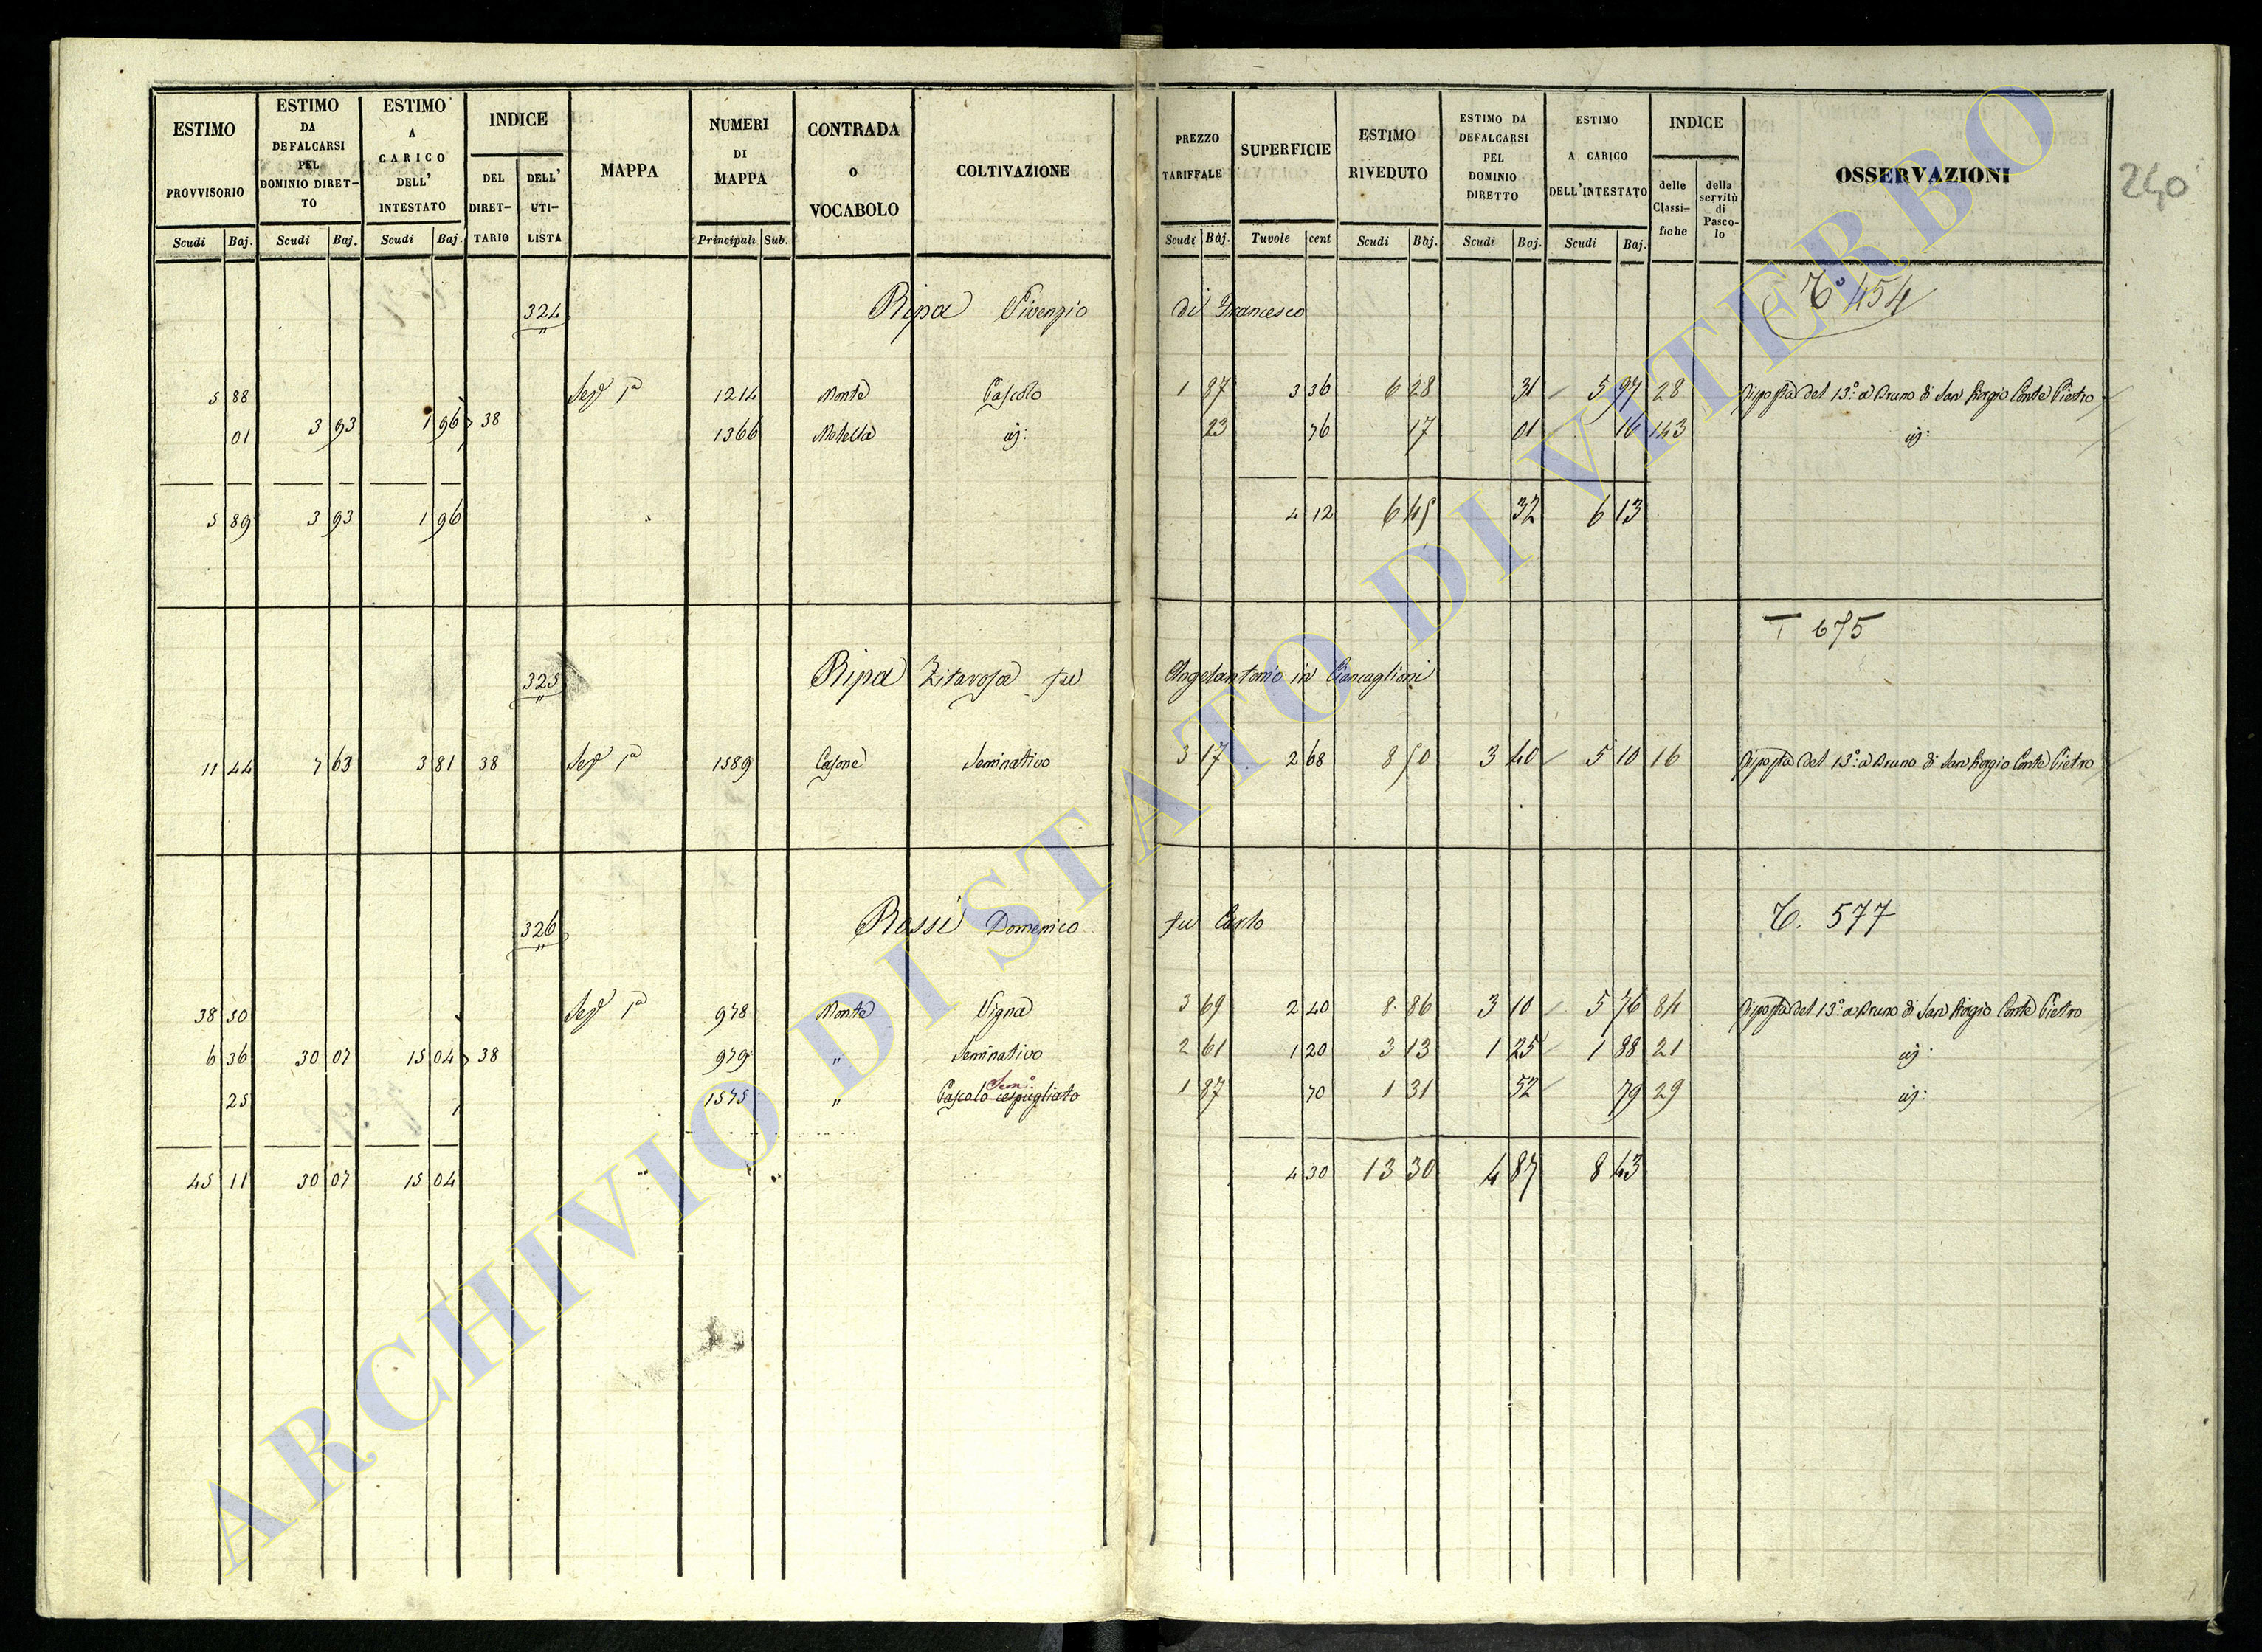 ESTIMO PROVVISORIO Scudi Baj.
ESTIMO DA DEFALCARSI PEL DOMINIO DIRET- TO Scudi Baj.
ESTIMO A CARICO DELL' INTESTATO Scudi Baj.
INDICE DEL DIRET- TARIO DELL' UTI- LISTA
MAPPA
NUMERI DI MAPPA Principali Sub.
CONTRADA o VOCABOLO
COLTIVAZIONE
PREZZO TARIFFALE Scudi Baj.
SUPERFICIE Tavole cent
ESTIMO RIVEDUTO Scudi Baj.
ESTIMO DA DEFALCARSI PEL DOMINIO DIRETTO Scudi Baj.
ESTIMO A CARICO DELL'INTESTATO Scudi Baj.
INDICE delle Classi- fiche della servitù di Pasco- lo
OSSERVAZIONI
240
324 Ripa Vivenzio di Francesco T° 454
5 88 Sez. 1a 1214 Monte Pascolo 1 87 3 36 6 28 31 5 97 28 Risposta del 13° a Bruno di San Giorgio Conte Pietro
01 3 93 1 96 38 1366 Motella id: 23 76 17 01 16 143 id:
5 89 3 93 1 96 4 12 6 45 32 6 13
T 675
325 Ripa Zitarosa fu Angelantonio in Ciancaglioni
11 44 7 63 3 81 38 Sez. 1a 1589 Casone Seminativo 3 17 2 68 8 50 3 40 5 10 16 Risposta del 13° a Bruno di San Giorgio Conte Pietro
326 Rossi Domenico fu Carlo T. 577
38 50 Sez. 1a 978 Monte Vigna 3 69 2 40 8 86 3 10 5 76 84 Risposta del 13° a Bruno di San Giorgio Conte Pietro
6 36 30 07 15 04 38 979 " Seminativo 2 61 1 20 3 13 1 25 1 88 21 id:
Sem°
25 1575 " Pascolo cespugliato 1 87 70 1 31 52 79 29 id:
45 11 30 07 15 04 4 30 13 30 4 87 8 43
ARCHIVIO DI STATO DI VITERBO